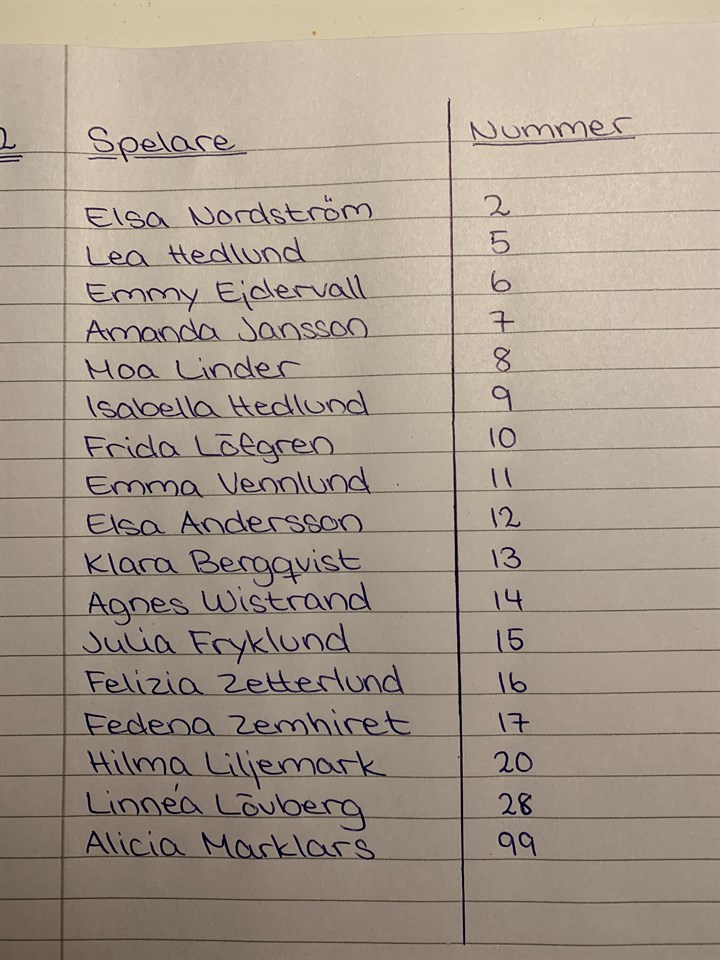 2 Spelare Nummer
Elsa Nordström 2
Lea Hedlund 5
Emmy Ejdervall 6
Amanda Jansson 7
Moa Linder 8
Isabella Hedlund 9
Frida Löfgren 10
Emma Vennlund 11
Elsa Andersson 12
Klara Bergqvist 13
Agnes Wistrand 14
Julia Fryklund 15
Felizia Zetterlund 16
Fedena Zemhiret 17
Hilma Liljemark 20
Linnéa Lövberg 28
Alicia Marklars 99